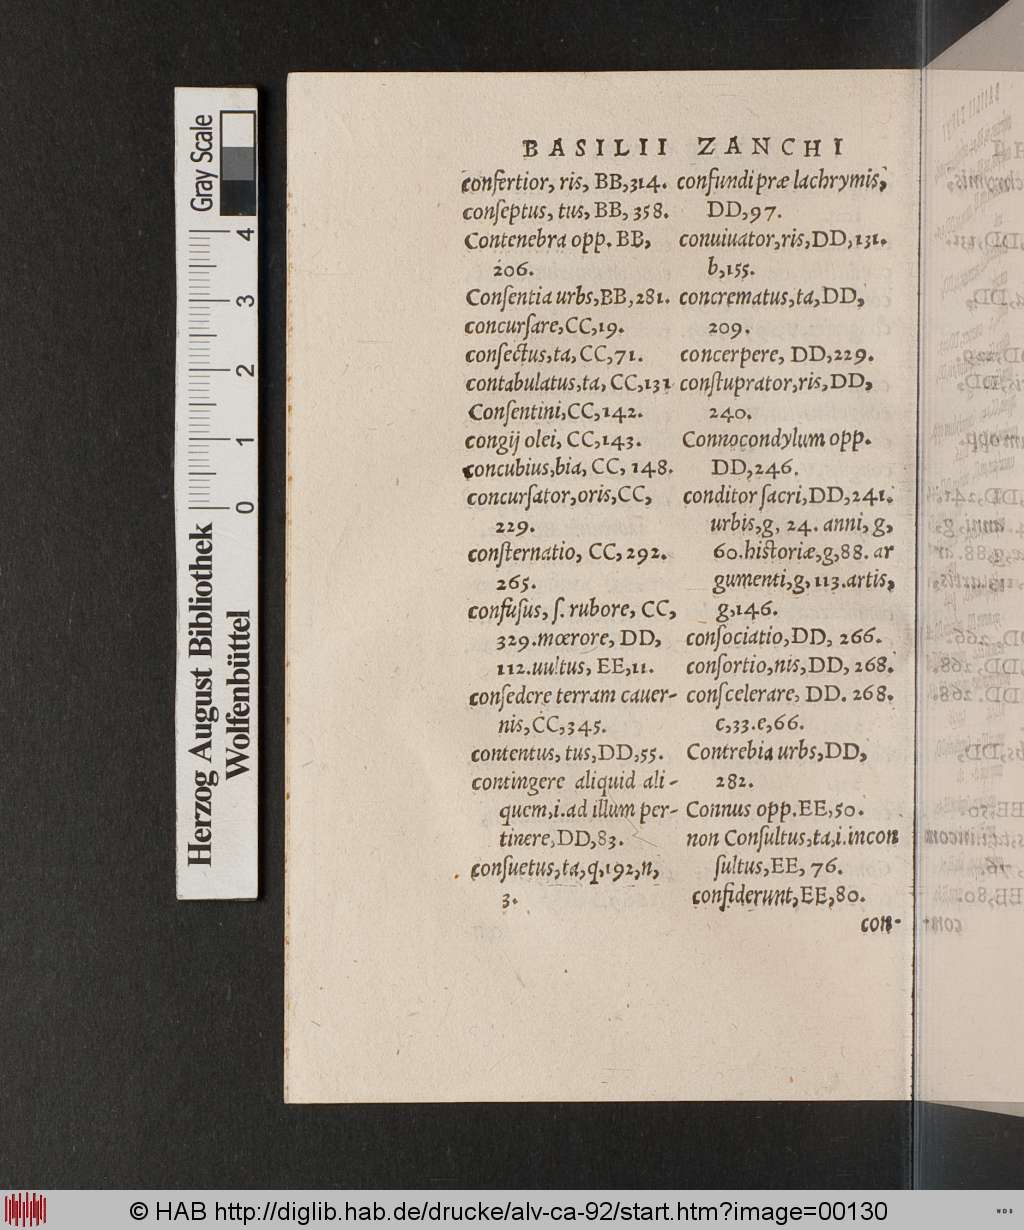 BASILII ZANCHI
confertior, ris, BB,314.
conſeptus, tus, BB, 358.
Contenebra opp. BB,
206.
Conſentia urbs,BB,281.
concurſare,CC,19.
conſectus,ta,CC,71.
contabulatus,ta, CC,131
Conſentini,CC,142.
congij olei, CC,143.
concubius,bia, CC, 148.
concurſator,oris,CC,
229.
conſternatio, CC,292.
265.
confuſus, ſ. rubore, CC,
329.mœrore, DD,
112.uultus, EE,11.
conſedere terram cauer-
nis,CC,345.
contentus, tus,DD,55.
contingere aliquid ali-
quem,i.ad illum per-
tinere,DD,83.
conſuetus,ta,q,192,n,
3.
confundi præ lachrymis,
DD,97.
conuiuator,ris,DD,131.
b,155.
concrematus,ta,DD,
209.
concerpere, DD,229.
conſtuprator,ris,DD,
240.
Connocondylum opp.
DD,246.
conditor ſacri,DD,241.
urbis,g, 24. anni, g,
60.historiæ,g,88. ar
gumenti,g,113.artis,
g,146.
conſociatio,DD, 266.
conſortio,nis,DD, 268.
conſcelerare, DD. 268.
c,33.e,66.
Contrebia urbs,DD,
282.
Connus opp.EE,50.
non Conſultus,ta,i.incon
ſultus,EE, 76.
confiderunt,EE,80.
con-
Gray Scale
4
3
2
1
0
Herzog August Bibliothek
Wolfenbüttel
© HAB http://diglib.hab.de/drucke/alv-ca-92/start.htm?image=00130